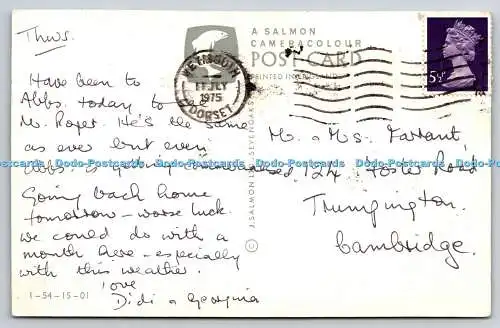 Thurs.
Have been to
Abbs. today to
Mr. Roper. He's the same
as ever but even
Abbs. is
Going back home
tomorrow - worse luck.
We could do with a
month here - especially
with this weather.
Love
Didi & Georgina
1-54-15-01
A SALMON
CAMERACOLOUR
POST CARD
PRINTED IN ENGLAND
WEYMOUTH
11 JLY
1975
DORSET
5½P
© J. SALMON SEVENOAKS
Mr. & Mrs. Farrant,
124 Foster Road
Trumpington.
Cambridge.
Dodo-Postcards Dodo-Postcards Dodo-Postcards Dodo-Postcards Dodo-Postcards